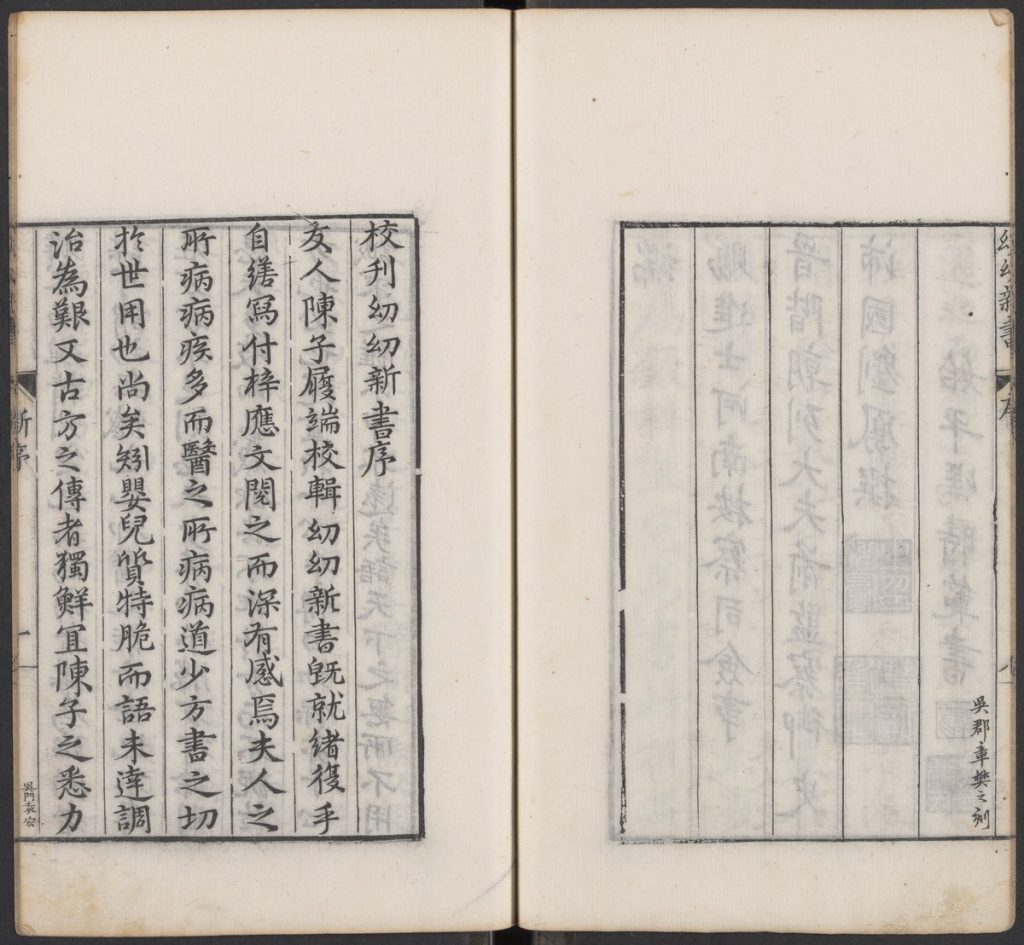 幼幼新書
序
吳郡章樊之刻
校刋幼幼新書序
友人陳子履端校輯幼幼新書旣就緒復手
自繕寫付梓應文閱之而深有感焉夫人之
所病病疾多而醫之所病病道少方書之切
扵世用也尚矣矧嬰兒質特脆而語未達調
治為艱又古方之傳者獨鮮宜陳子之悉力
新序
一
吳門袁宏